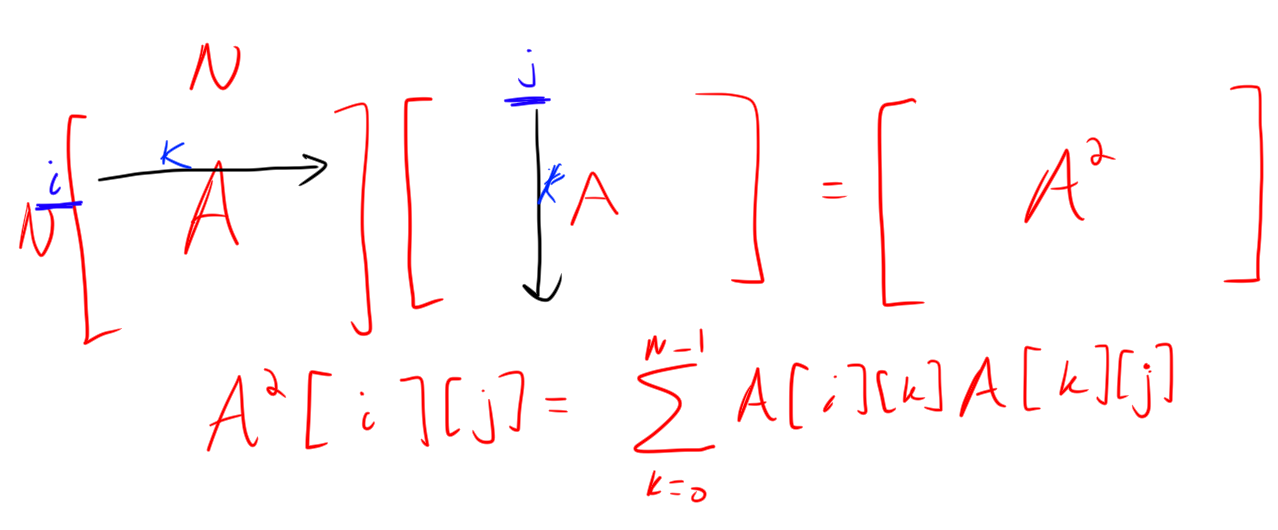 N j
i N [ K A ] [ K A ] = [ A² ]
A²[i][j] = ∑_{k=0}^{N-1} A[i][k] A[k][j]